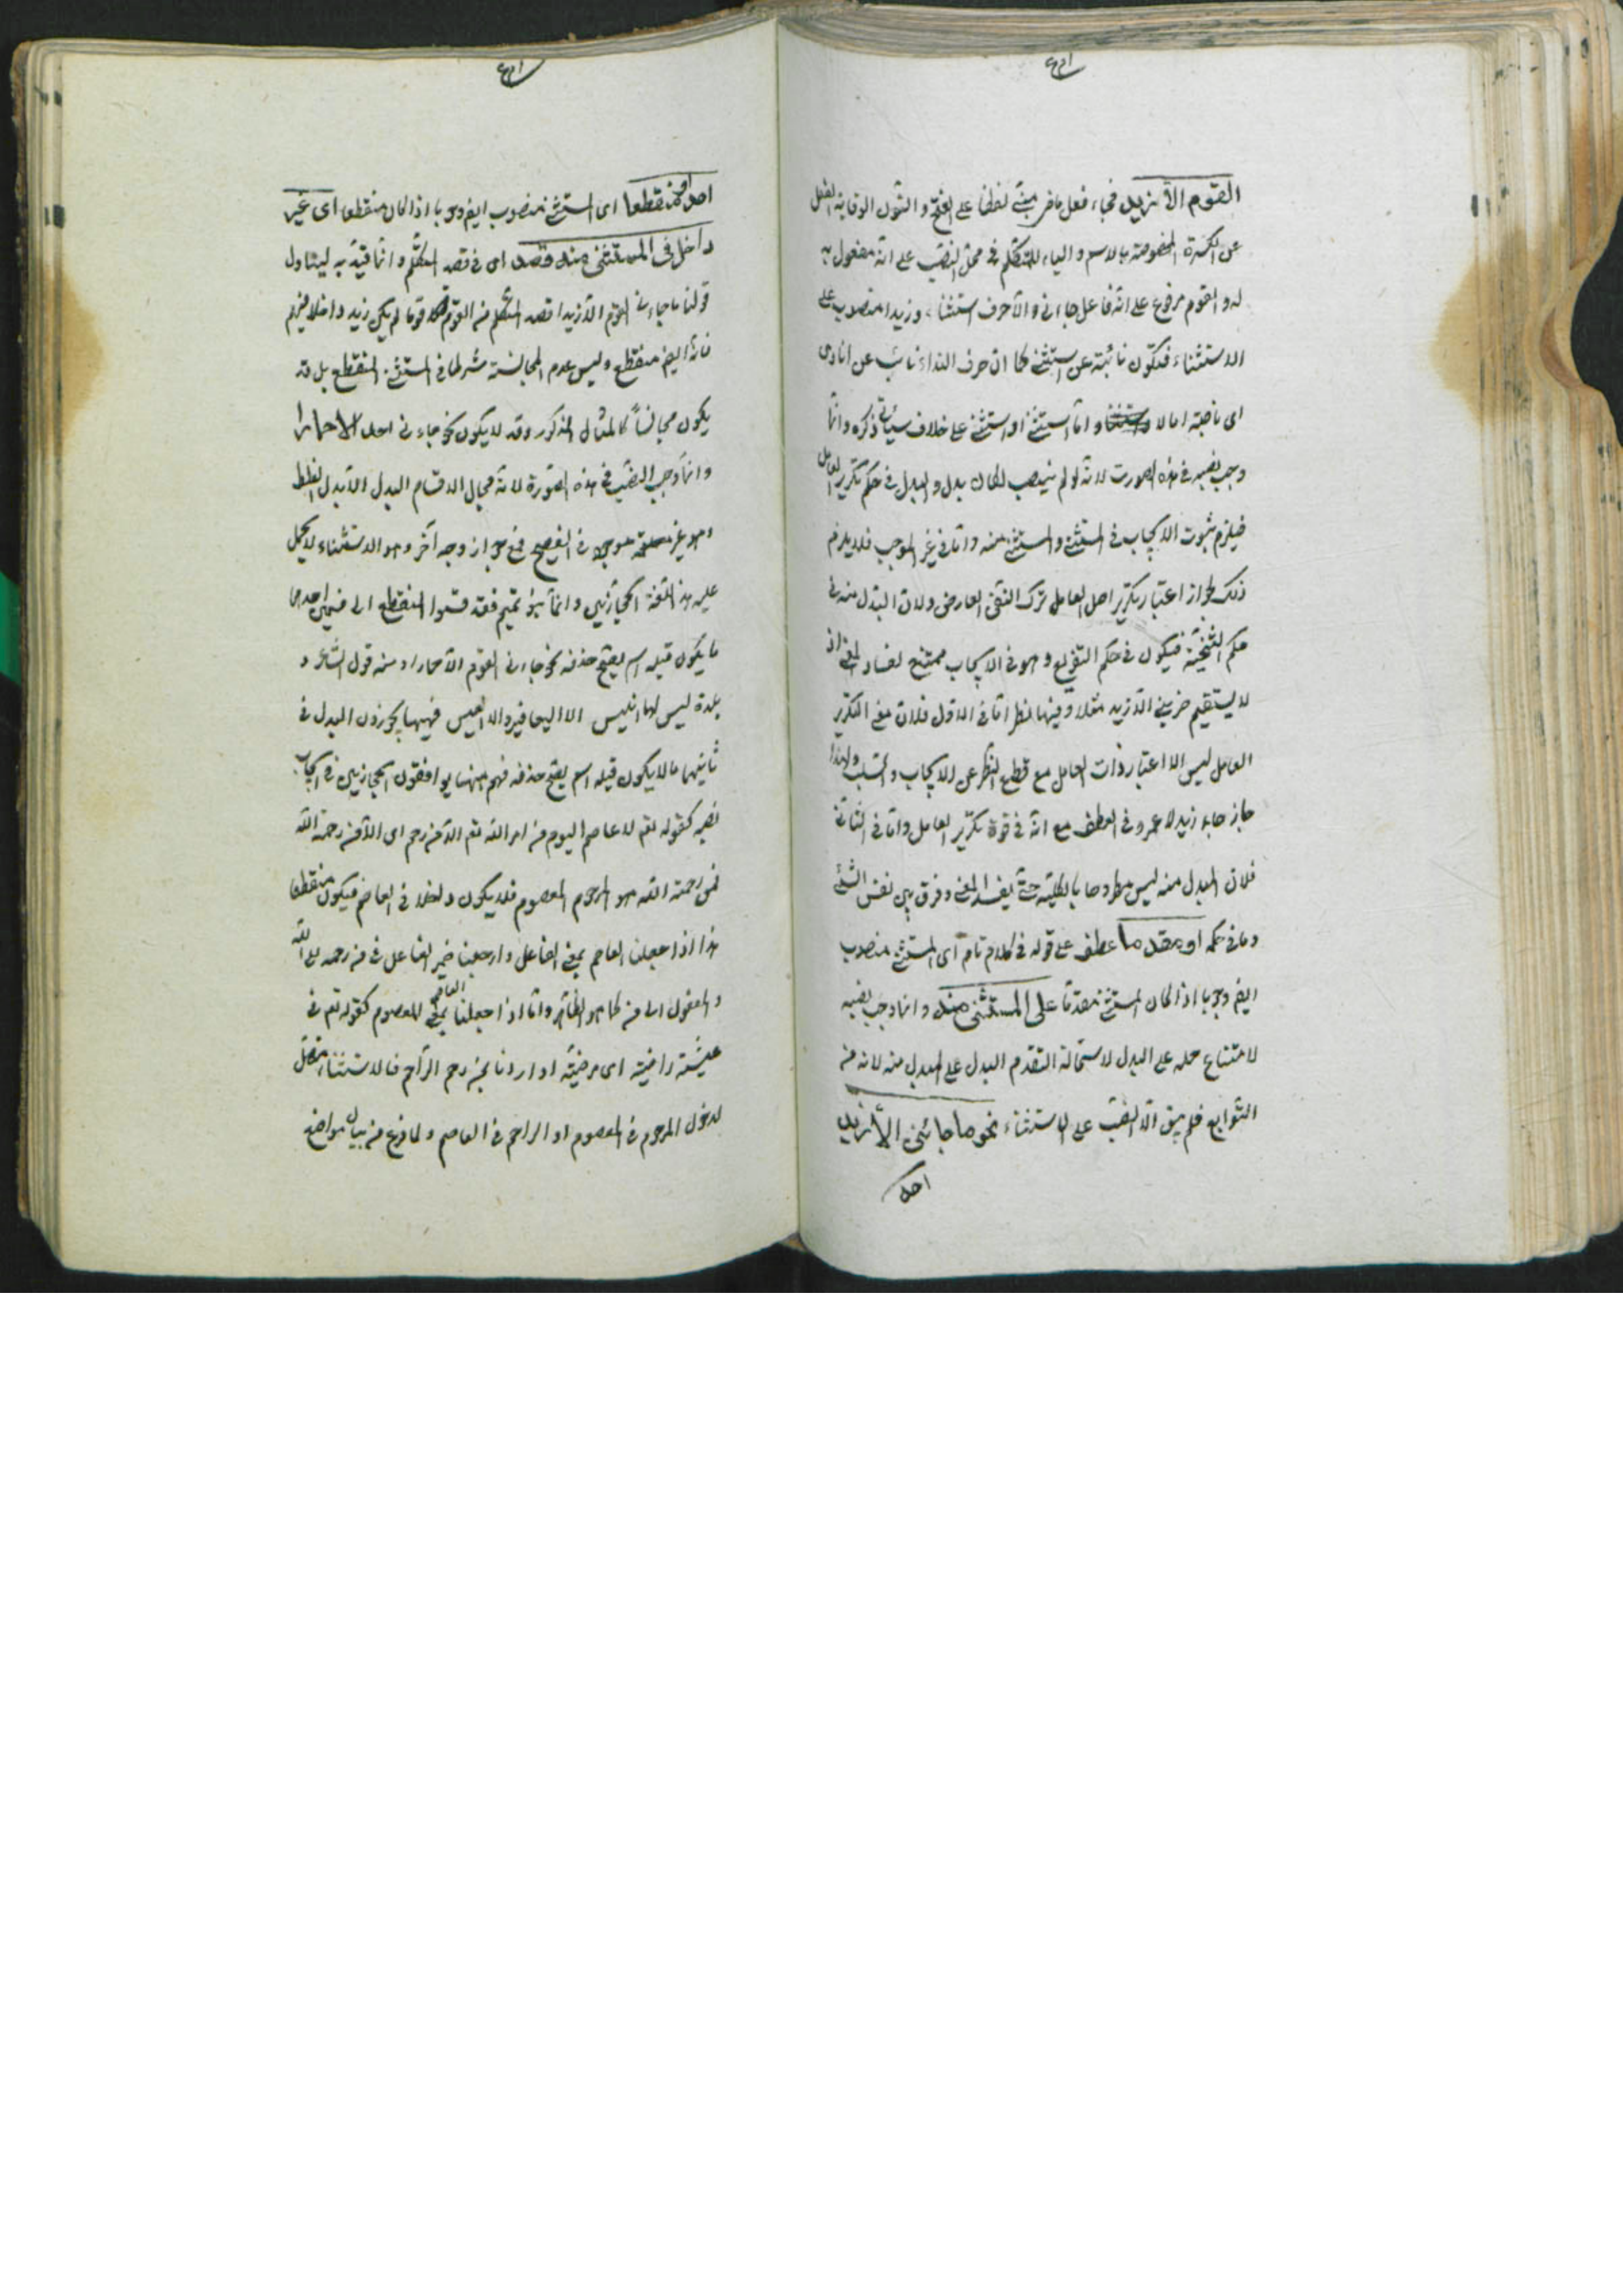 القوم الا زيدا فجاء فعل ماض مبني لفظا على الفتح والنون الوقاية الفعل
عن الكسرة المخصوصة بالاسم والياء للمتكلم في محل النصب على انه مفعول به
له والقوم مرفوع على انه فاعل جاءني والا حرف استثناء وزيدا منصوب على
الاستثناء فتكون نائبة عن استثني كما ان حرف النداء نائب عن انادي
اي ناصبة اما لا واما استثني او استثني على خلاف سيأتي ذكره وانما
وجب نصبه في هذه الصورت لانه لو لم ينصب لكان بدل والبدل في حكم تكرير العامل
فيلزم ثبوت الايجاب في المستثنى والمستثنى منه واما في غير الموجب فلا يلزم
ذلك لجواز اعتبار تكرير اصل العامل بترك النفي العارض ولان المبدل منه في
حكم التنحية فيكون في حكم التفريع وهو في الايجاب ممتنع لفساد المعنى اذ
لا يستقيم ضربني الا زيد مثلا وفيهما نظر اما في الاول فلان معنى التكرير
العامل ليس الا اعتبار ذات العامل مع قطع النظر عن الايجاب والسلب ولهذا
جاز جاء زيد لا عمرو في العطف مع انه في قوة تكرير العامل واما في الثاني
فلان المبدل منه ليس مطروحا بالكلية حتى يفسد المعنى وفرق بين نفس الشئ
وما في حكمه او مقدما عطف على قوله في كلام تام اي المستثنى منصوب
ايضا وجوبا اذا كان المستثنى مقدما على المستثنى منه وانما وجب نصبه
لامتناع حمله على البدل لاستحالة التقدم البدل على المبدل منه لانه من
التوابع فلم يبق الا النصب على الاستثناء نحو ما جائني الا زيدا
احد
احد او منقطعا اي المستثنى منصوب ايضا وجوبا اذا كان منقطعا اي غير
داخل في المستثنى منه قصد اي في قصد المتكلم وانما قيد به ليتناول
قولنا ما جاءني القوم الا زيدا اذا قصد المتكلم من القوم قوما لم يكن زيد داخلا فيهم
فانه ايضا منقطع وليس عدم المجانسة شرطا في المستثنى المنقطع بل قد
يكون مجانسا كالمثال المذكور وقد لا يكون نحو جاءني احد الا حمارا
وانما وجب النصب في هذه الصورة لانه لا مجال لاقسام البدل الا بدل الغلط
وهو غير موجود في الفصيح مع جواز وجه آخر وهو الاستثناء لا يحمل
عليه هذا اللغة الحجازيين واما بنو تميم فقد قسموا المنقطع الى قسمين احدهما
ما يكون قبله اسم يصح حذفه نحو جاءني القوم الا حمارا ومنه قول الشاعر و
بلدة ليس لها انيس الا اليعافير والا العيس فههنا يجوزون البدل في
ثانيهما ما لا يكون قبله اسم يصح حذفه فهم ههنا يوافقون الحجازيين في ايجاب
نصبه كقوله تعالى لا عاصم اليوم من امر الله تعالى الا من رحم اي الا من رحمة الله
فمن رحمة الله هو المرحوم المعصوم فلا يكون داخلا في العاصم فيكون منقطعا
هذا اذا جعلنا العاصم بمعنى الفاعل وارجعنا ضمير الفاعل في من رحمه الى الله
والمفعول الى من كما هو الظاهر واما اذا جعلنا العاصم بمعنى المعصوم كقوله تعالى في
عيشة راضية اي مرضية او اردنا بمن رحم الراحم فالاستثناء متصل
لدخول المرحوم في المعصوم او الراحم في العاصم ولما فرغ من بيان مواضع